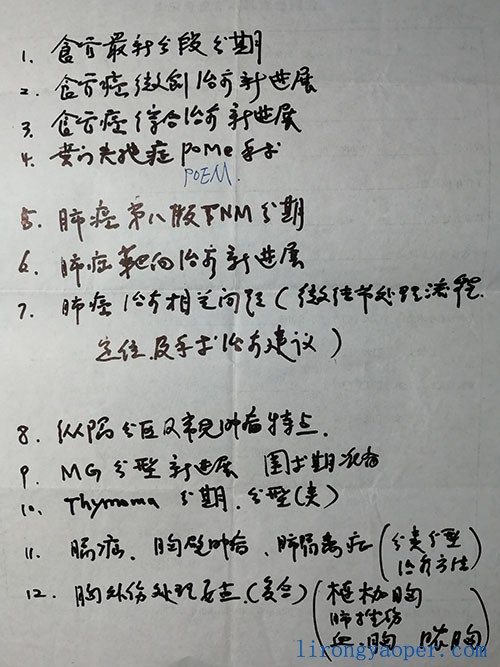 1. 食管最新分段分期
2. 食管癌微创治疗新进展
3. 食管癌综合治疗新进展
4. 贲门失弛症 PoMe 手术
POEM.
5. 肺癌第八版TNM分期
6. 肺癌靶向治疗新进展
7. 肺癌治疗相关问题(微结节处理流程.
定位及手术治疗建议)
8. 纵隔分区及常见肿瘤特点.
9. MG分型新进展 围手术期准备
10. Thymoma 分期.分型(类)
11. 脓疡、胸壁肿瘤、肺隔离症(分类分型
治疗方法
12. 胸外伤处理要点.(复合)(连枷胸
肺挫伤
血胸 脓胸
lirongyaoper.com